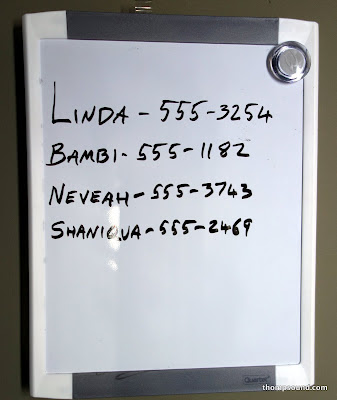 LINDA - 555-3254
BAMBI - 555-1182
NEVEAH - 555-3743
SHANIQUA - 555-2469
Quartet
thompsound.com